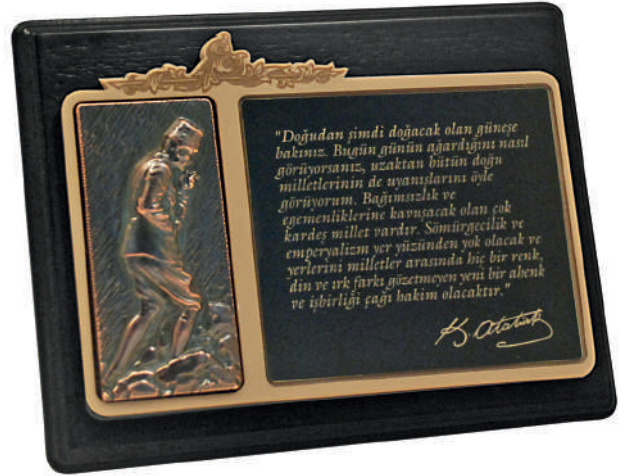 "Doğudan şimdi doğacak olan güneşe
bakınız. Bugün günün ağardığını nasıl
görüyorsanız, uzaktan bütün doğu
milletlerinin de uyanışlarını öyle
görüyorum. Bağımsızlık ve
egemenliklerine kavuşacak olan çok
kardeş millet vardır. Sömürgecilik ve
emperyalizm yer yüzünden yok olacak ve
yerlerini milletler arasında hiç bir renk,
din ve ırk farkı gözetmeyen yeni bir ahenk
ve işbirliği çağı hakim olacaktır."
K. Atatürk